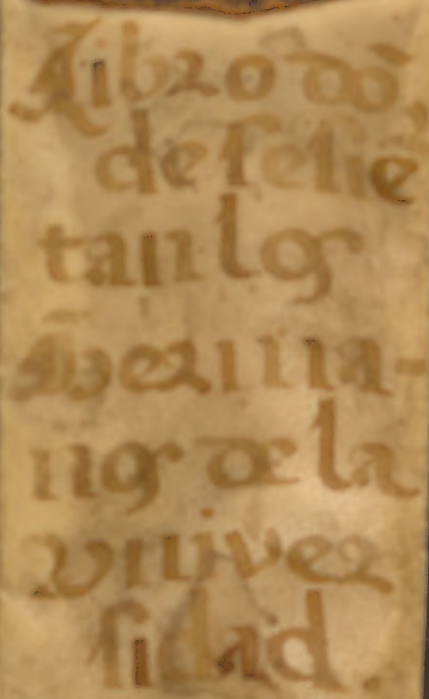 Libro dō,
de se sīe
tan los
Herma-
nos de la
vniver
sidad.